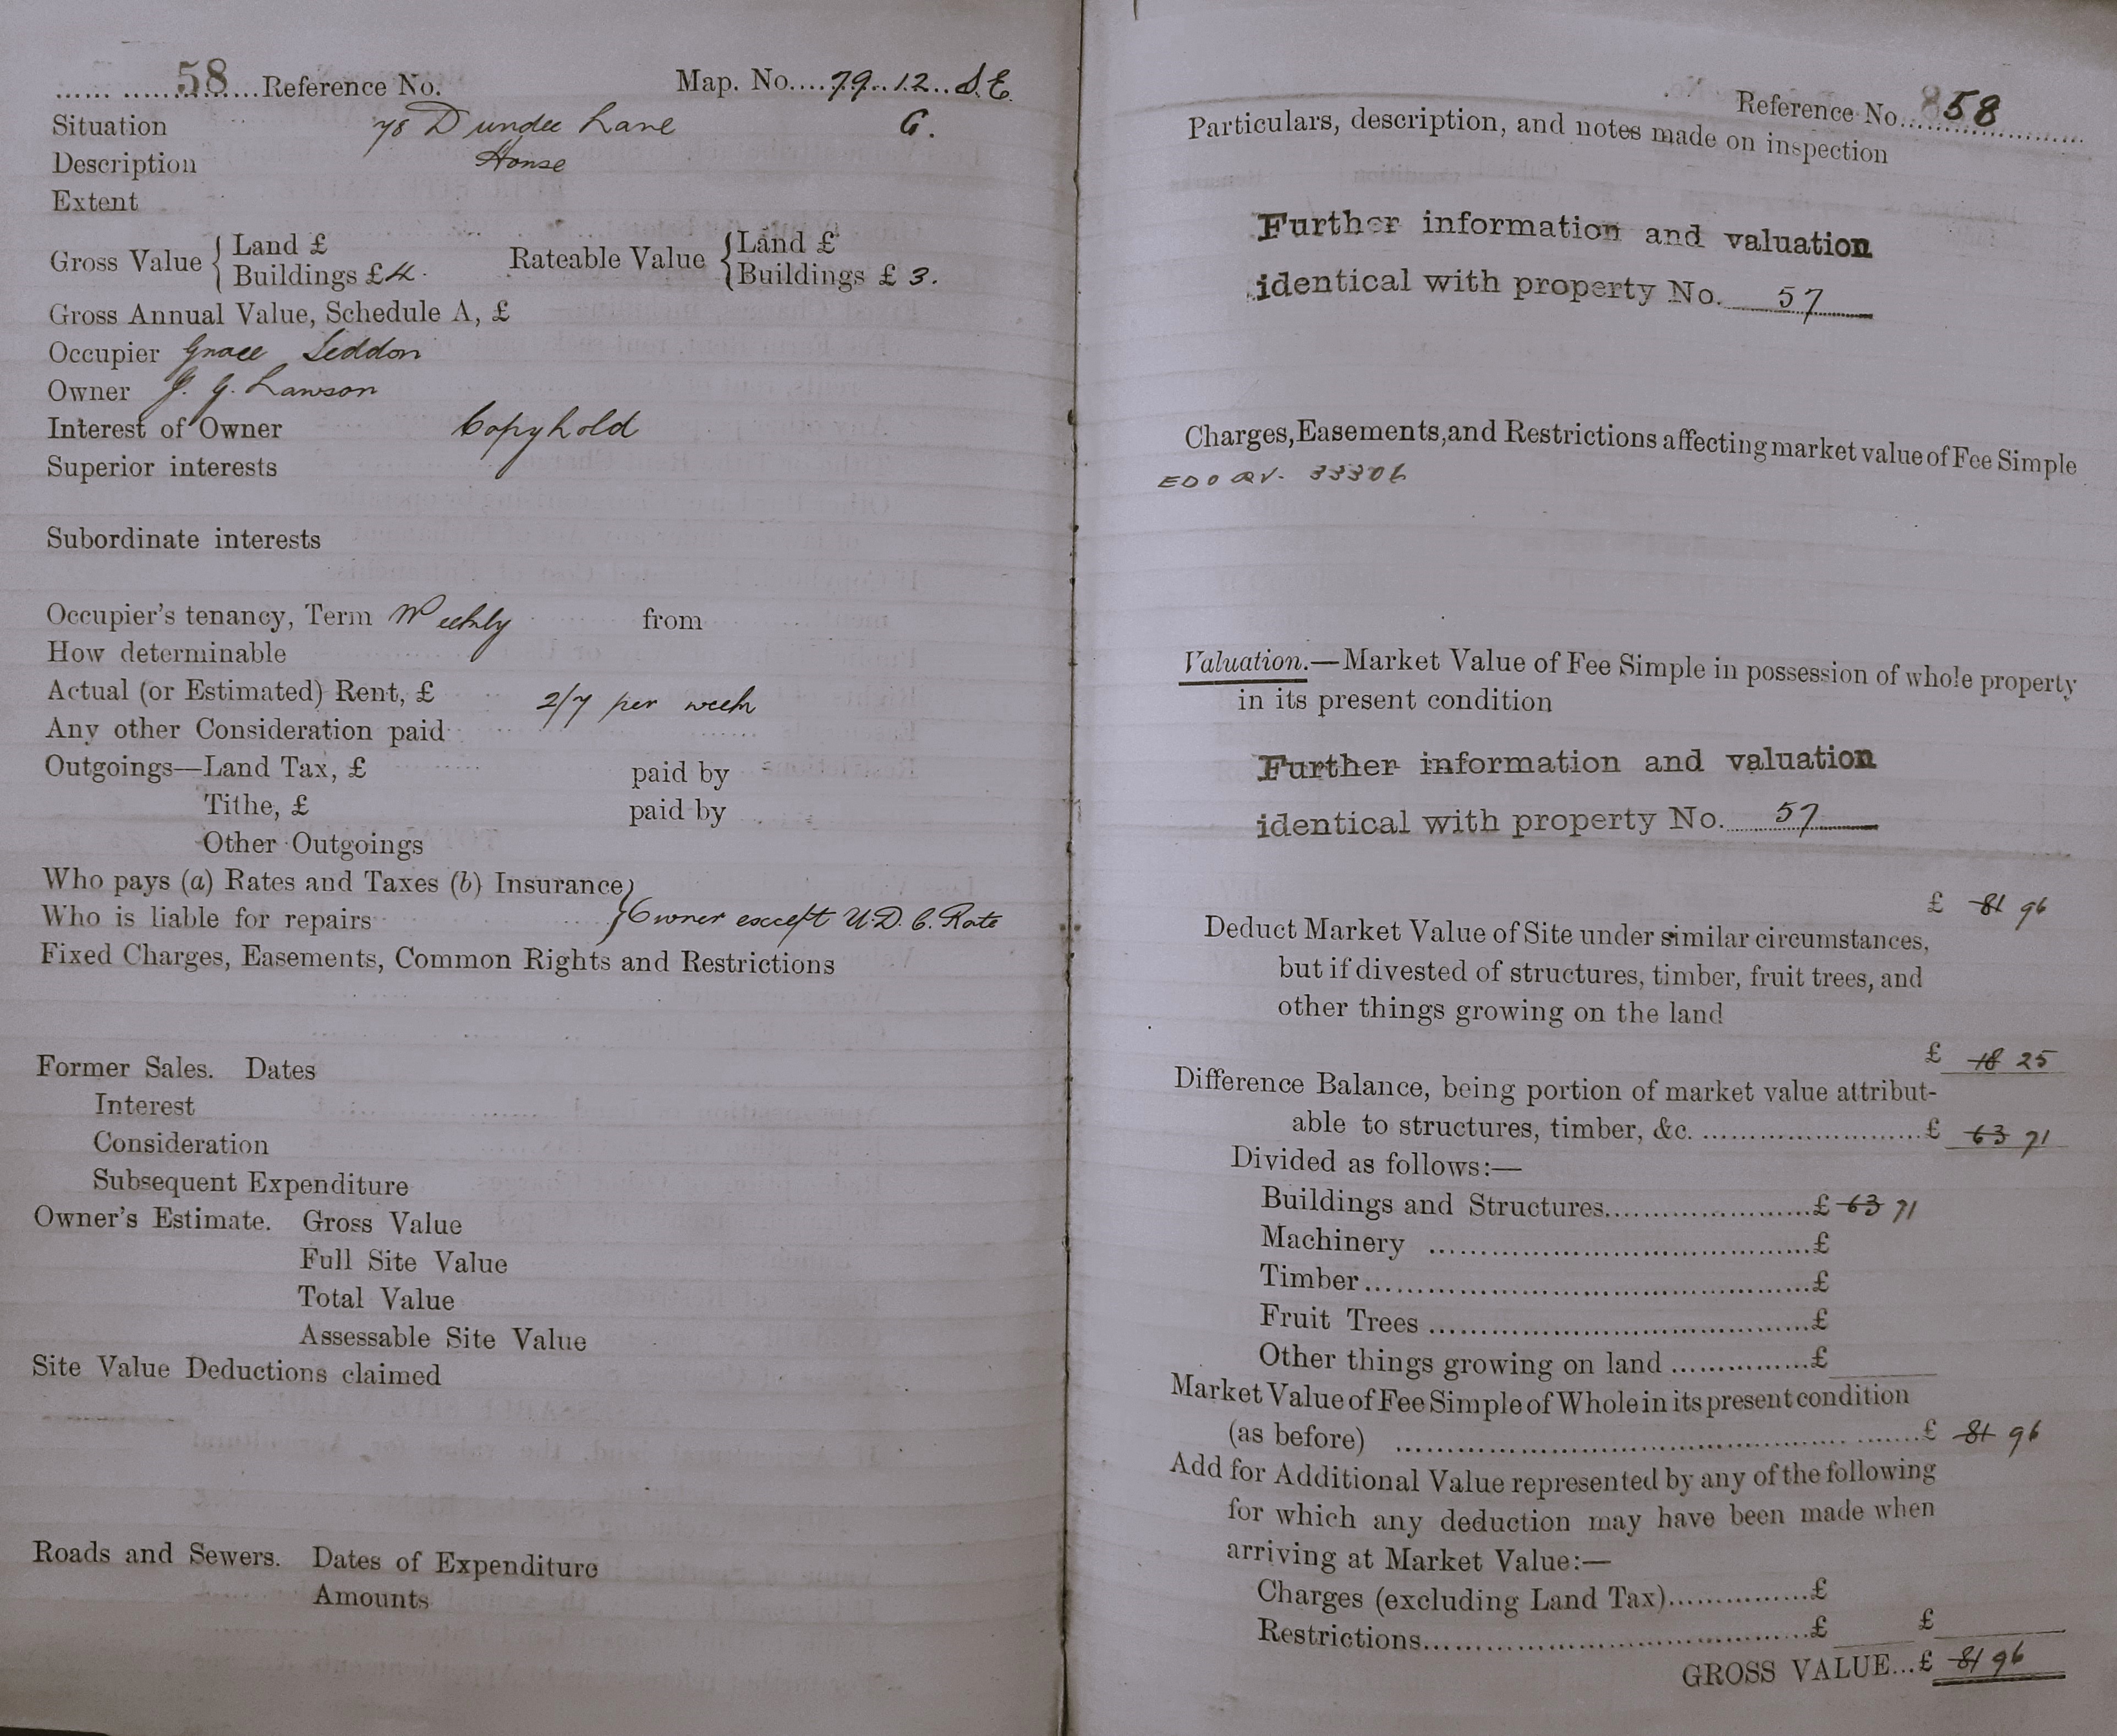 58 Reference No. Map. No. 79. 12. S.E.
Situation 78 Dundee Lane G.
Description House
Extent
Gross Value { Land £ Rateable Value { Land £
Buildings £ 4. Buildings £ 3.
Gross Annual Value, Schedule A, £
Occupier Grace Seddon
Owner J. G. Lawson
Interest of Owner Copyhold
Superior interests
Subordinate interests
Occupier's tenancy, Term Weekly from
How determinable
Actual (or Estimated) Rent, £ 2/7 per week
Any other Consideration paid
Outgoings—Land Tax, £ paid by
Tithe, £ paid by
Other Outgoings
Who pays (a) Rates and Taxes (b) Insurance }
Who is liable for repairs } Owner except U.D.C. Rate
Fixed Charges, Easements, Common Rights and Restrictions
Former Sales. Dates
Interest
Consideration
Subsequent Expenditure
Owner's Estimate. Gross Value
Full Site Value
Total Value
Assessable Site Value
Site Value Deductions claimed
Roads and Sewers. Dates of Expenditure
Amounts
Reference No. 58
Particulars, description, and notes made on inspection
Further information and valuation
identical with property No. 57
Charges, Easements, and Restrictions affecting market value of Fee Simple
33306
Valuation.—Market Value of Fee Simple in possession of whole property
in its present condition
Further information and valuation
identical with property No. 57
£ 81 96
Deduct Market Value of Site under similar circumstances,
but if divested of structures, timber, fruit trees, and
other things growing on the land
£ 18 25
Difference Balance, being portion of market value attribut-
able to structures, timber, &c. £ 63 71
Divided as follows:—
Buildings and Structures £ 63 71
Machinery £
Timber £
Fruit Trees £
Other things growing on land £
Market Value of Fee Simple of Whole in its present condition
(as before) £ 81 96
Add for Additional Value represented by any of the following
for which any deduction may have been made when
arriving at Market Value:—
Charges (excluding Land Tax) £
Restrictions £ £
GROSS VALUE...£ 81 96